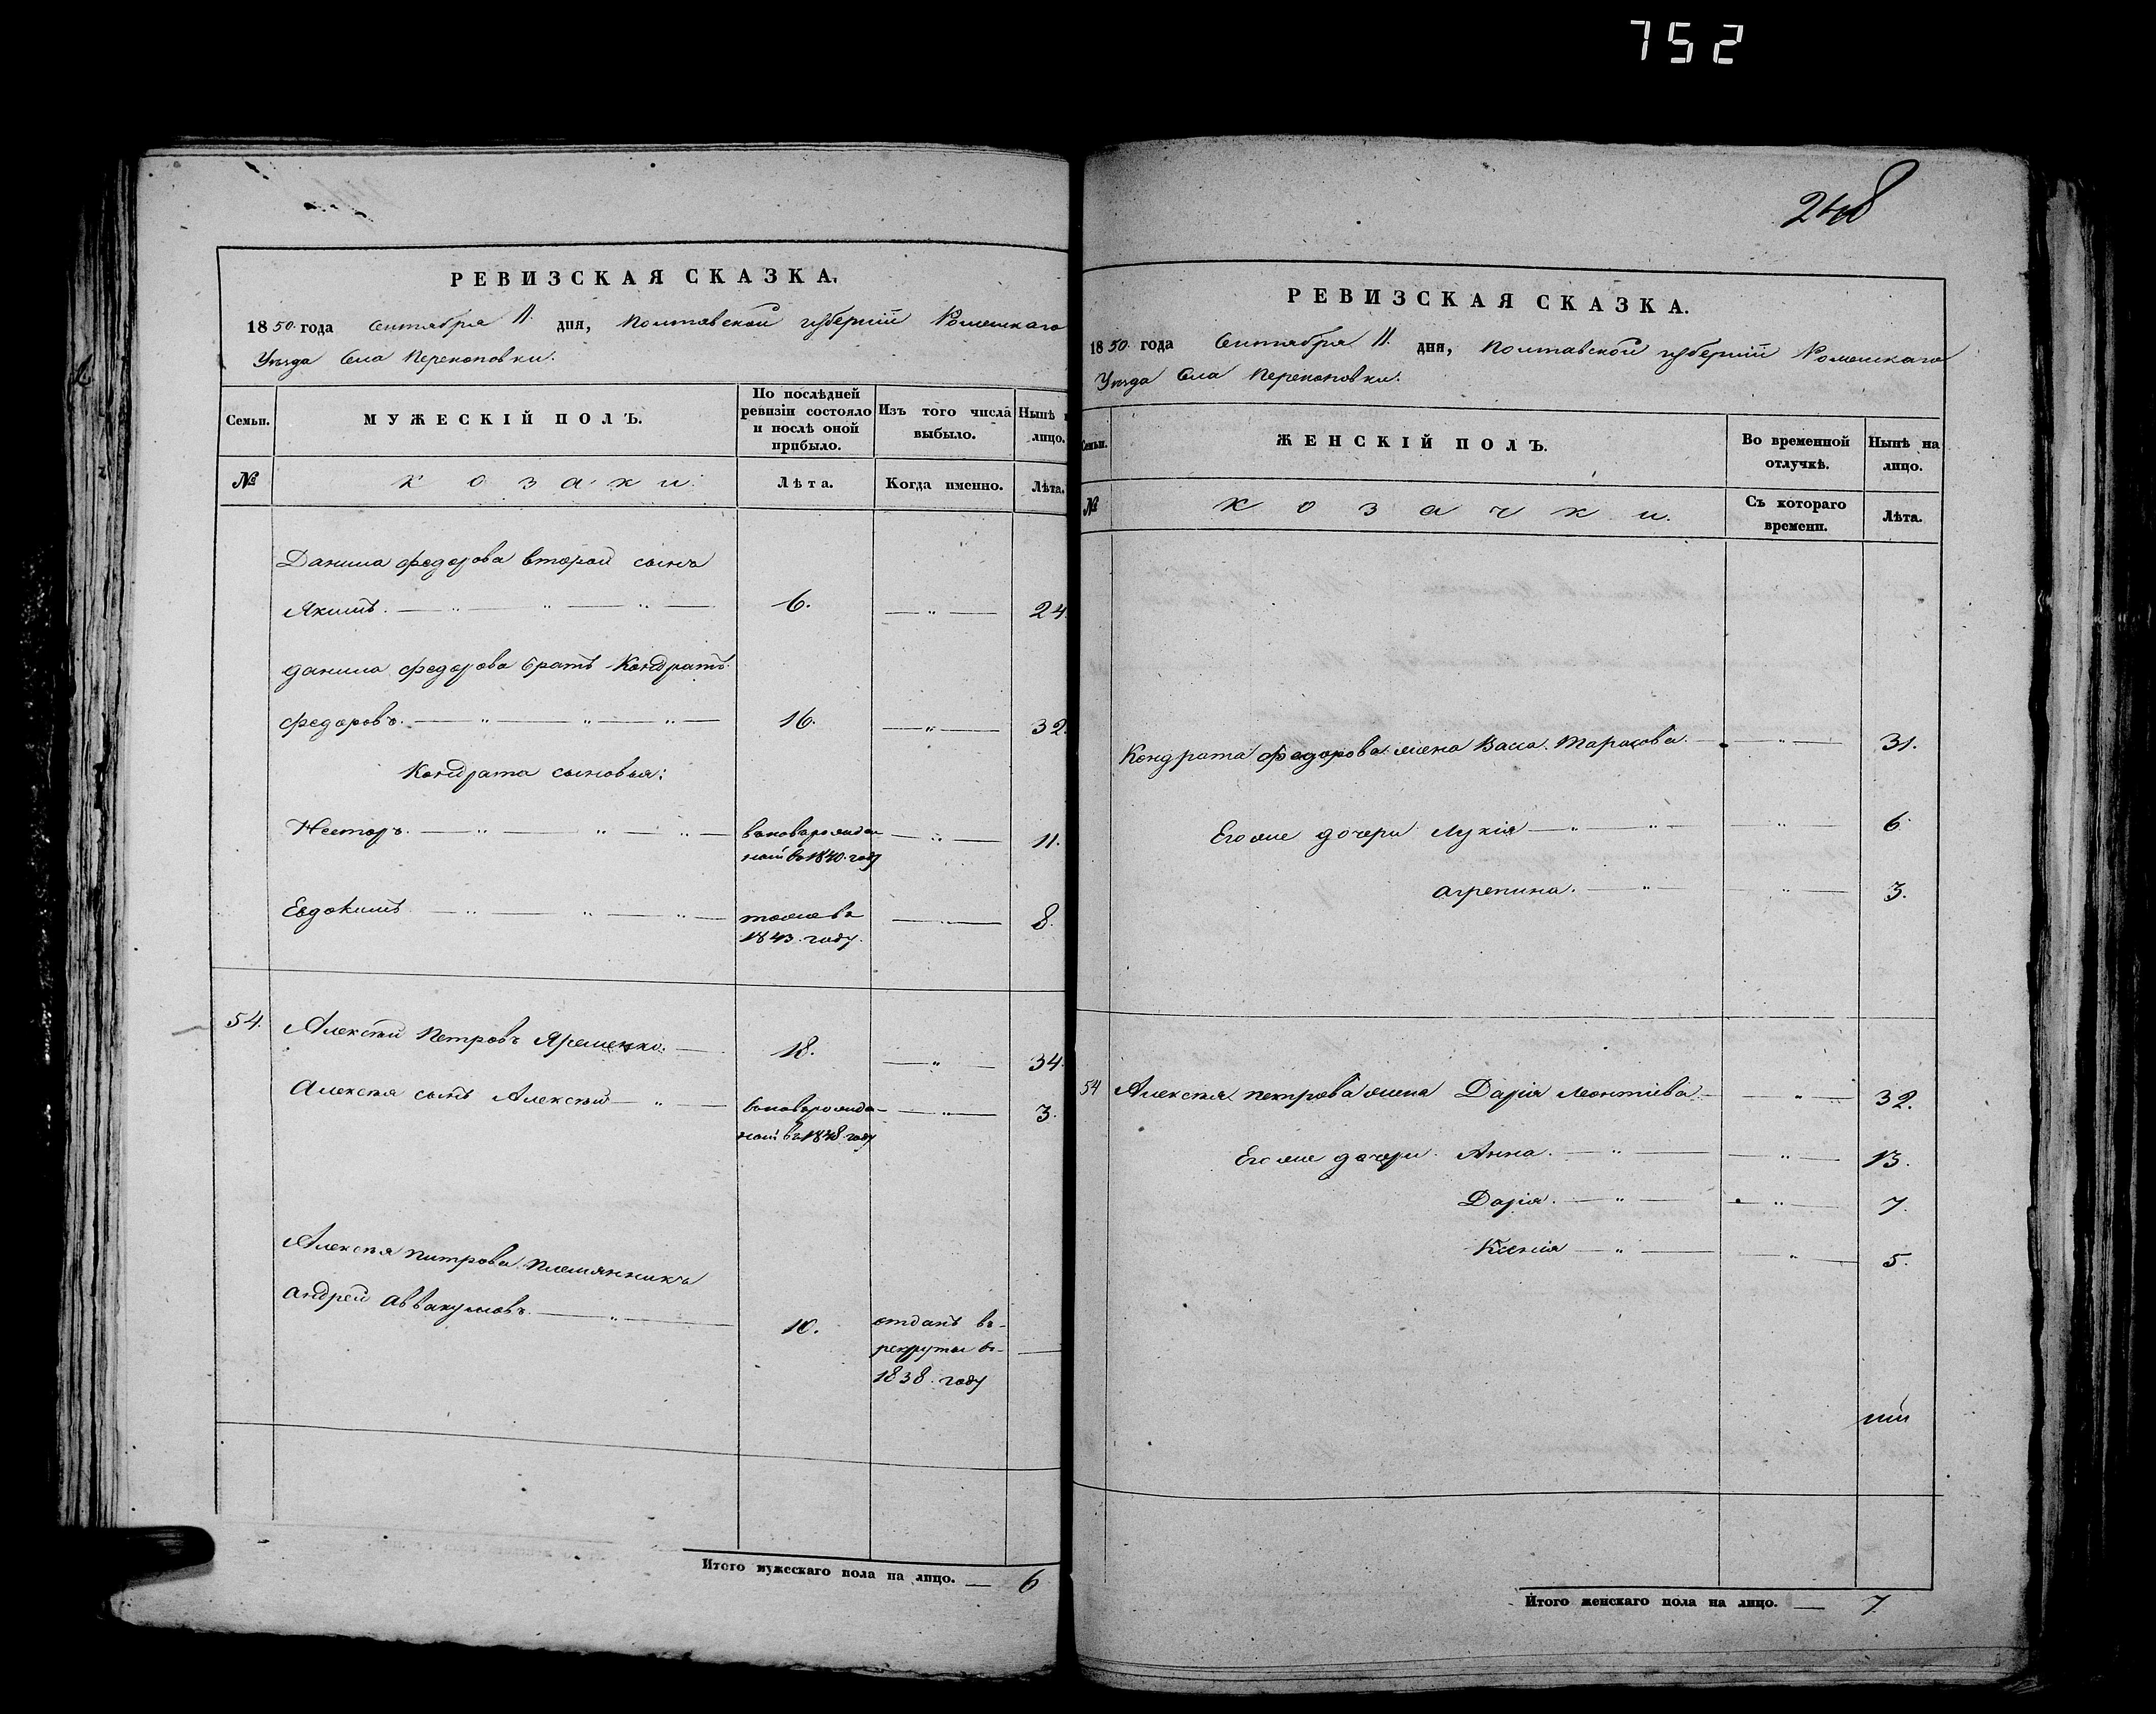 752
248
РЕВИЗСКАЯ СКАЗКА.
1850 года Сентября 11. дня, Полтавской губерніи Роменскаго
Уѣзда Села Перекоповки.
Семьи. МУЖЕСКІЙ ПОЛЪ. По послѣдней ревизіи состояло и послѣ оной прибыло. Изъ того числа выбыло. Нынѣ лицо.
№ козаки Лѣта. Когда именно. Лѣта.
Данила Федорова второй сынъ
Якимъ. 6. 24.
Данила Федорова братъ Кондратъ
Федоровъ. 16. 32.
Кондрата сыновья:
Несторъ. вновьрожден
ной въ 1840. году 11.
Евдокимъ тоже въ
1843. году. 8.
54. Алексѣй Петровъ Яременко. 18. 34.
Алексѣя сынъ Алексѣй вновьрожде-
ной въ 1848. году 3.
Алексѣя Питрова племянникъ
Андрей Аввакумовъ. 10. отданъ въ-
рекруты въ-
1838. году
Итого мужескаго пола на лицо. 6
РЕВИЗСКАЯ СКАЗКА.
1850 года Сентября 11. дня, Полтавской губерніи Роменскаго
Уѣзда Села Перекоповки.
Семьи. ЖЕНСКІЙ ПОЛЪ. Во временной отлучкѣ. Нынѣ на лицо.
№ козачки. Съ котораго времени. Лѣта.
Кондрата Федорова жена Васа Тарасова. 31.
Его же дочери Лукія 6.
Агрепина. 3.
54 Алексѣя Петрова жена Дарія Леонтіева 32.
Его же дочери Анна. 13.
Дарія. 7.
Ксенія 5.
Итого женскаго пола на лицо. 7.